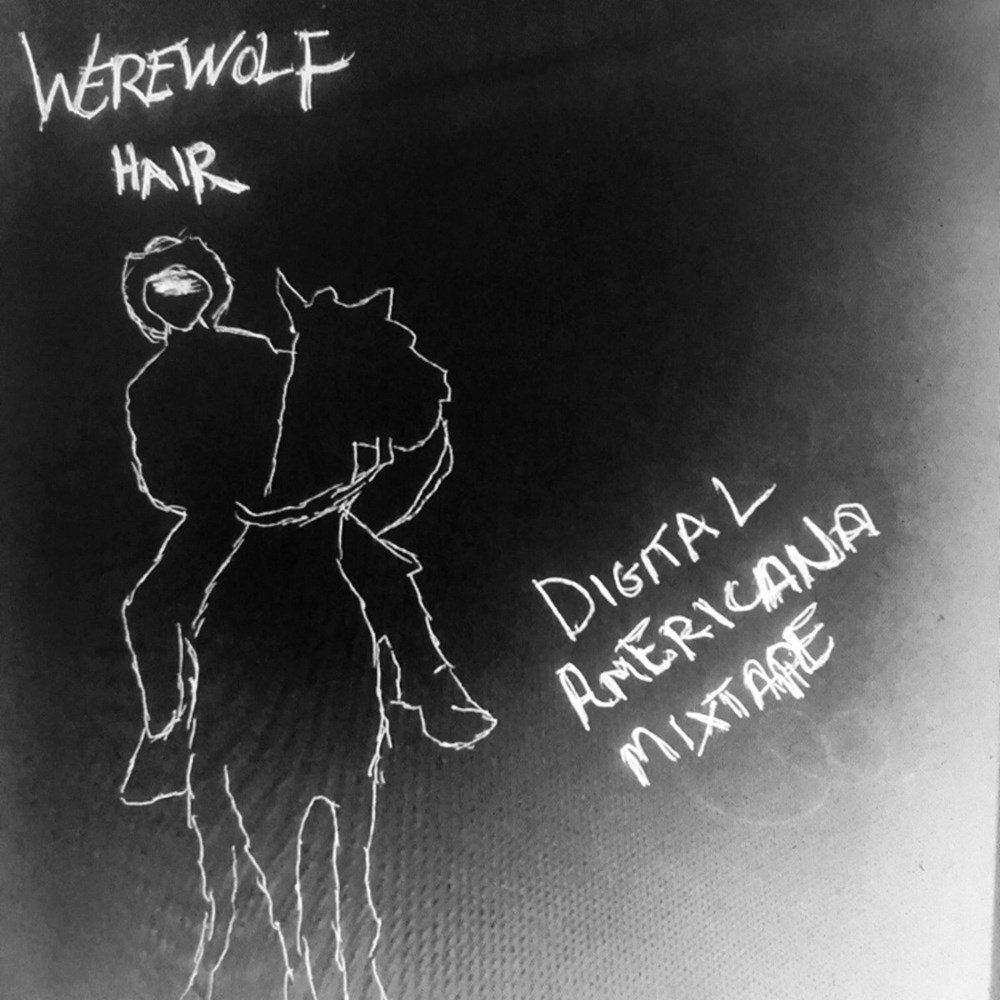 WEREWOLF
HAIR
DIGITAL
AMERICANA
MIXTAPE